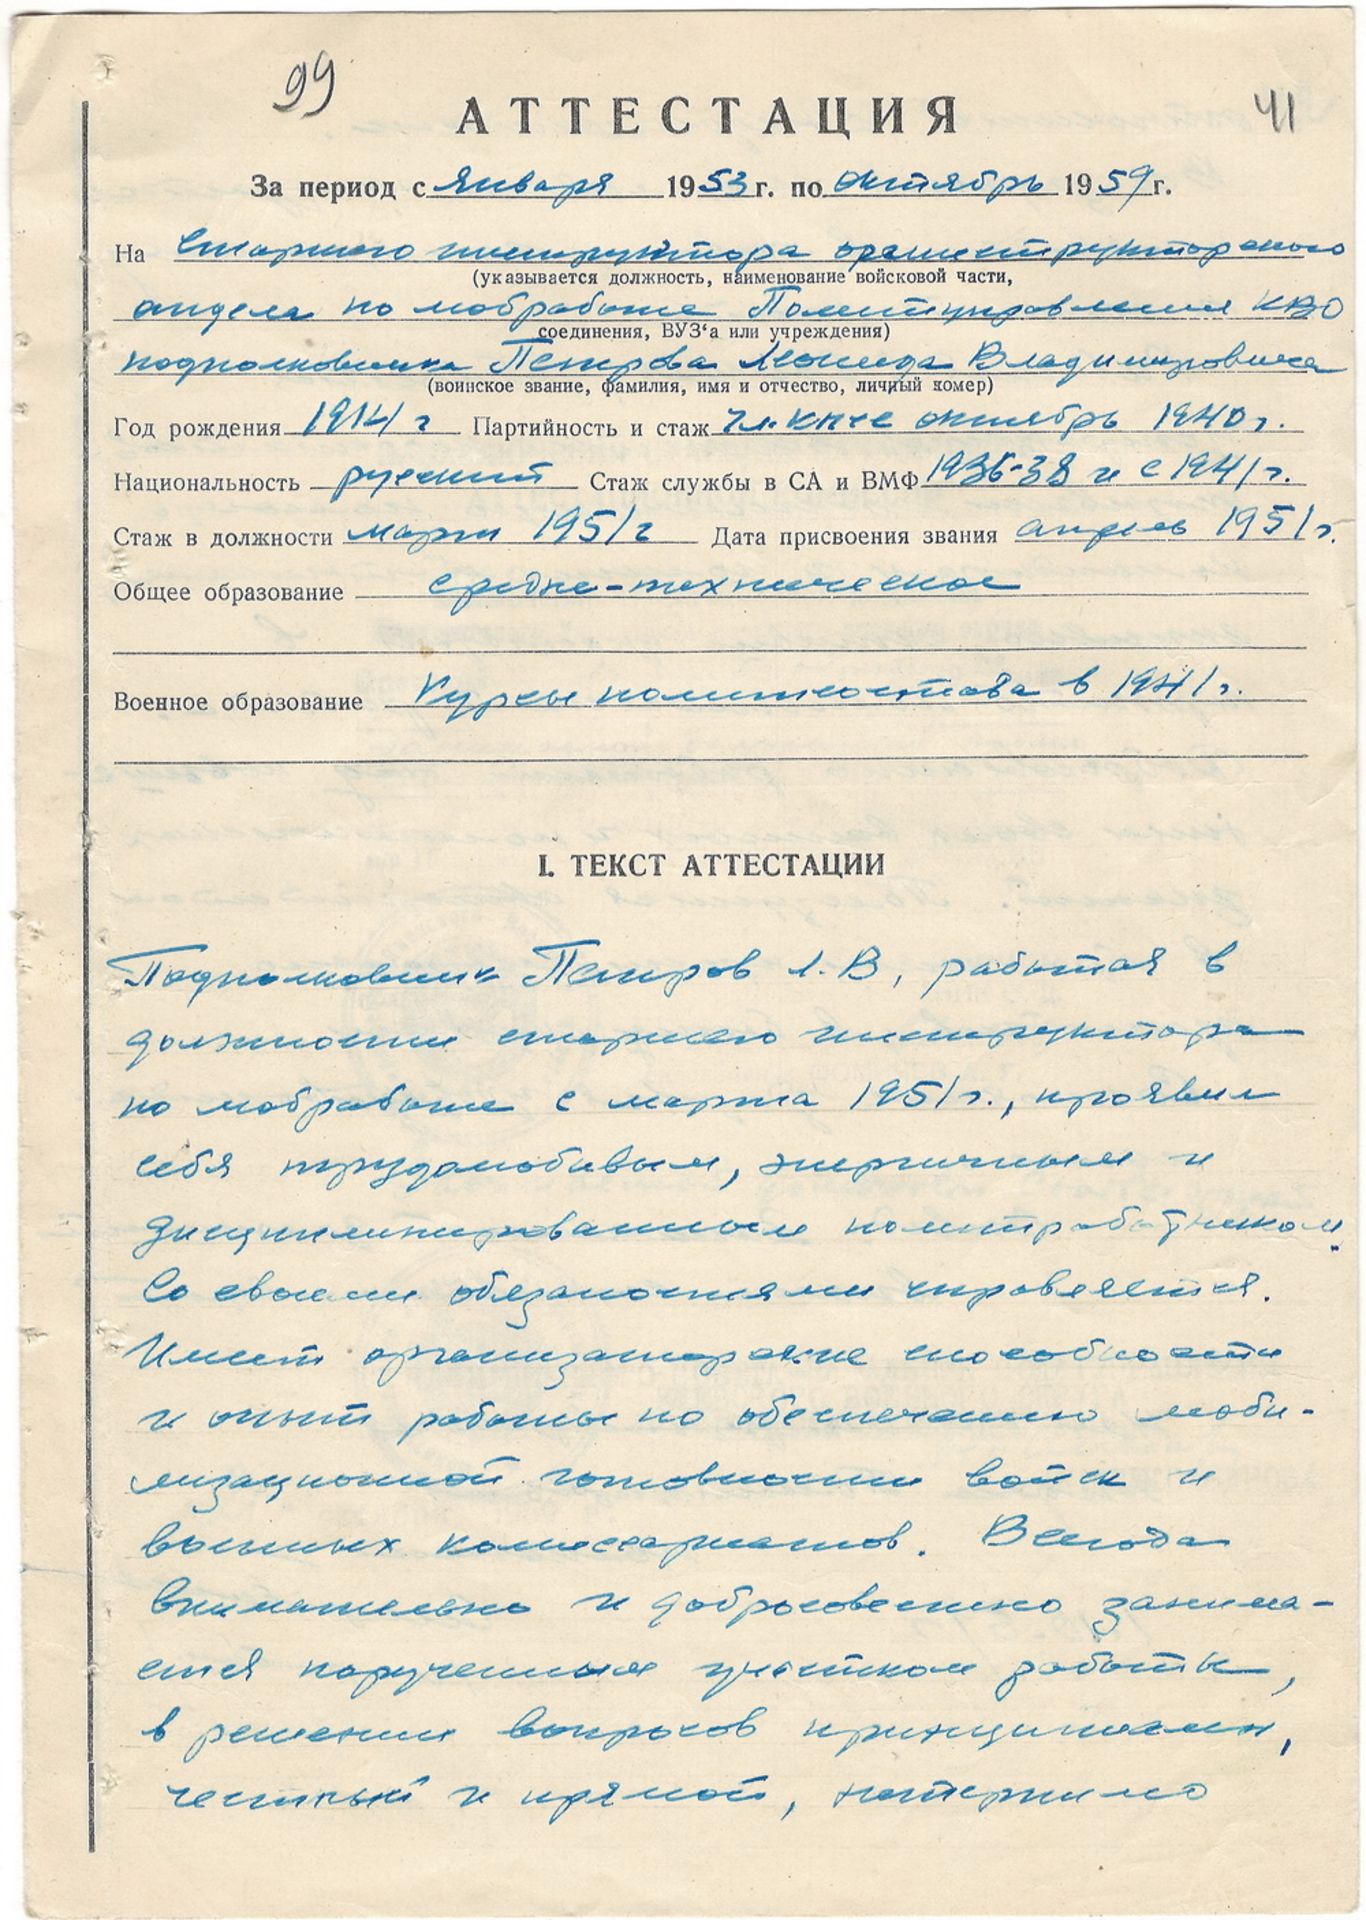 99
41
АТТЕСТАЦИЯ
За период с января 1953 г. по октябрь 1959 г.
На старшего инструктора оргинструкторского
(указывается должность, наименование войсковой части,
отдела по мобработе Политуправления КВО
соединения, ВУЗ‘а или учреждения)
подполковника Петрова Леонида Владимировича
(воинское звание, фамилия, имя и отчество, личный номер)
Год рождения 1914 г Партийность и стаж чл. КПСС октябрь 1940 г.
Национальность русский Стаж службы в СА и ВМФ 1936-38 и с 1941 г.
Стаж в должности март 1951 г Дата присвоения звания апрель 1951 г.
Общее образование средне-техническое
Военное образование Курсы политсостава в 1941 г.
I. ТЕКСТ АТТЕСТАЦИИ
Подполковник Петров Л.В, работая в
должности старшего инструктора
по мобработе с марта 1951 г., проявил
себя трудолюбивым, энергичным и
дисциплинированным политработником.
Со своими обязанностями справляется.
Имеет организаторские способности
и опыт работы по обеспечению моби-
лизационной готовности войск и
военных комиссариатов. Всегда
внимательно и добросовестно занима-
ется порученным участком работы,
в решении вопросов принципиален,
честный и прямой, нетерпимо